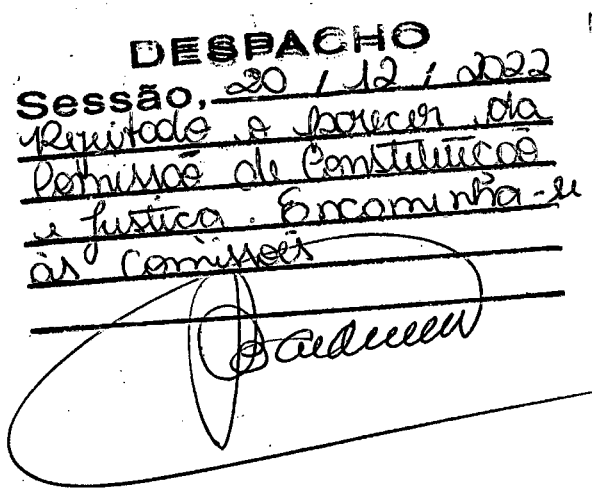 DESPACHO
Sessão, 20 / 12 / 2022
Rejeitado o parecer da
Comissão de Constituição
e Justiça. Encaminha-se
às Comissões